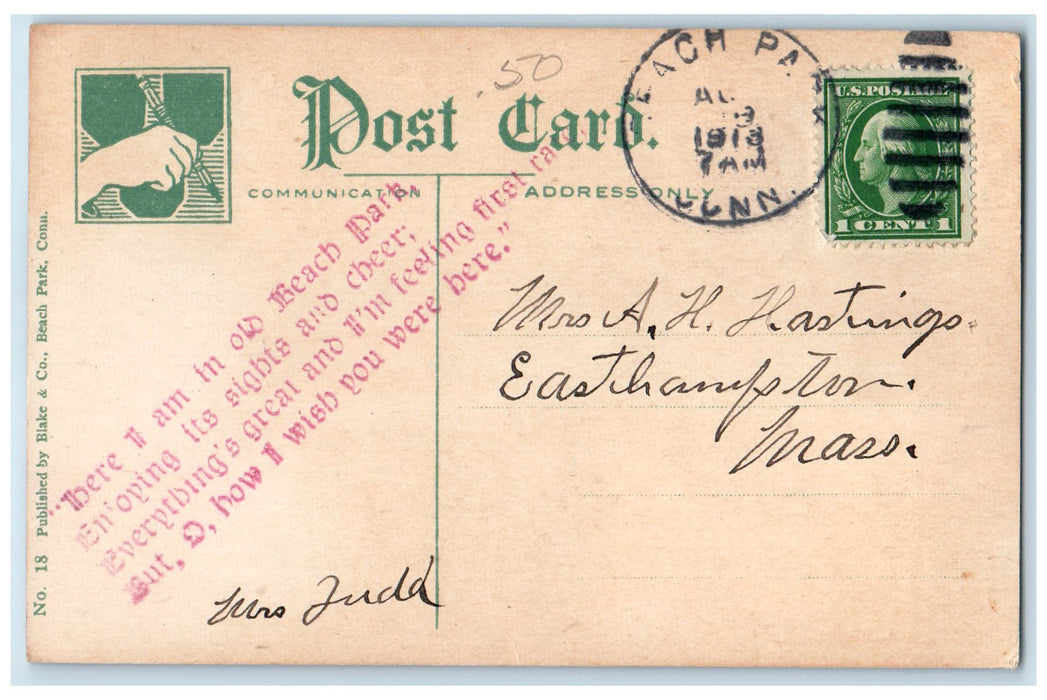 .50
Post Card.
COMMUNICATION
ADDRESS ONLY
BEACH PARK
1913
7AM
CONN.
U.S. POSTAGE
1 CENT 1
"Here I am in old Beach Park,
Enjoying its sights and cheer;
Everything's great and I'm feeling first rate
But, O, how I wish you were here."
Mrs A. H. Hastings.
Easthampton.
Mass.
Mrs Judd
No. 18 Published by Blake & Co., Beach Park, Conn.